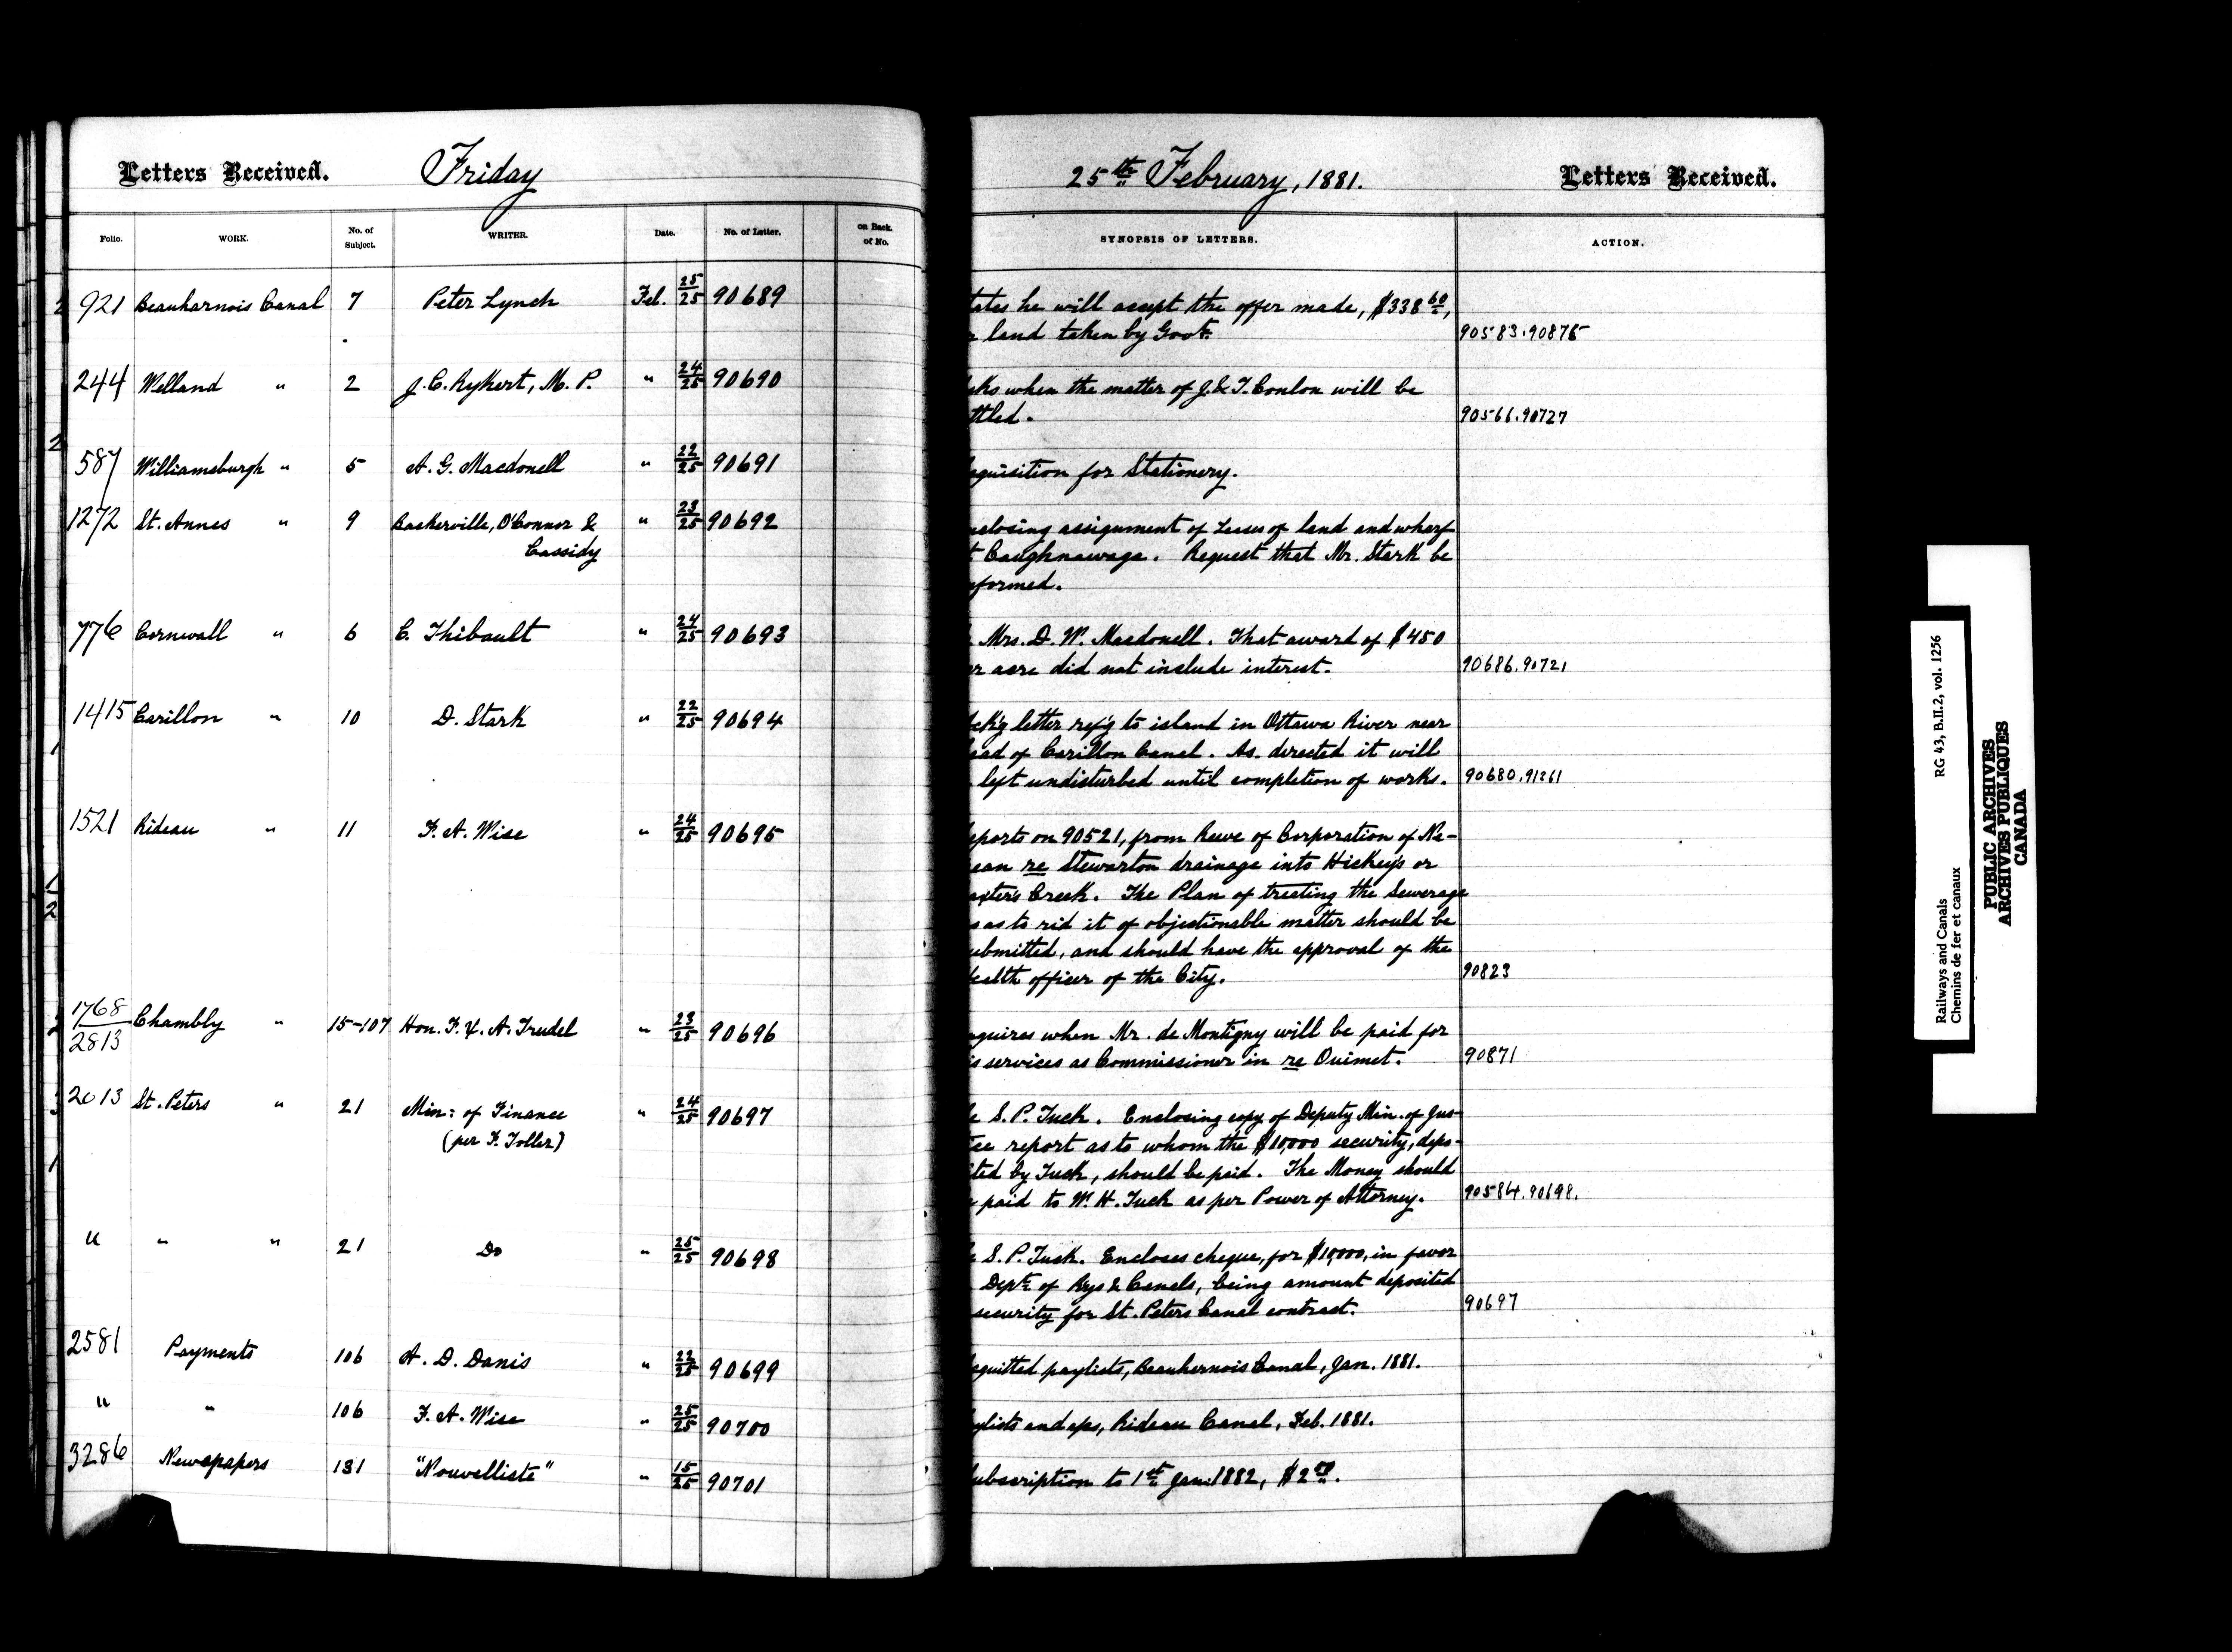 Letters Received. Friday
Folio. WORK. No. of Subject. WRITER. Date. No. of Letter. on Back of No.
921 Beauharnois Canal 7 Peter Lynch Feb. 25/25 90689
244 Welland " 2 J. C. Rykert, M. P. " 24/25 90690
587 Williamsburgh " 5 A. G. Macdonell " 22/25 90691
1272 St. Annes " 9 Baskerville, O'Connor & " 23/25 90692
Cassidy
776 Cornwall " 6 C. Thibault " 24/25 90693
1415 Carillon " 10 D. Stark " 22/25 90694
1521 Rideau " 11 F. A. Wise " 24/25 90695
1768/2813 Chambly " 15-107 Hon. F. X. A. Trudel " 23/25 90696
2013 St. Peters " 21 Min: of Finance " 24/25 90697
(per F. Toller)
" " " 21 Do " 25/25 90698
2581 Payments 106 A. D. Danis " 22/25 90699
" " 106 F. A. Wise " 25/25 90700
3286 Newspapers 131 "Nouvelliste" " 15/25 90701
25th February, 1881. Letters Received.
SYNOPSIS OF LETTERS. ACTION.
tates he will accept the offer made, $338 60,
r land taken by Govt. 90583.90875
sks when the matter of J. & T. Conlon will be
ttled. 90566.90727
quisition for Stationery.
nclosing assignment of Leases of land and wharf
t Caughnawaga. Request that Mr. Stark be
nformed.
Mrs. D. W. Macdonell. That award of $450
er acre did not include interest. 90686.90721
ck'g letter ref'g to island in Ottawa River near
ead of Carillon Canal. As directed it will
left undisturbed until completion of works. 90680.91261
eports on 90521, from Reeve of Corporation of Ne-
ean re Stewarton drainage into Hickey's or
axter's Creek. The Plan of treating the Sewerage
so as to rid it of objectionable matter should be
ubmitted, and should have the approval of the
ealth officer of the City. 90823
nquires when Mr. de Montigny will be paid for
is services as Commissioner in re Ouimet. 90871
e S. P. Tuck. Enclosing copy of Deputy Min. of Jus-
ice report as to whom the $10,000 security, depo-
ited by Tuck, should be paid. The Money should
e paid to W. H. Tuck as per Power of Attorney. 90584.90698.
e S. P. Tuck. Encloses cheque, for $10,000, in favor
Dept. of Rys & Canals, being amount deposited
security for St. Peters Canal contract. 90697
cquitted paylists, Beauharnois Canal, Jan. 1881.
ylists and aps, Rideau Canal, Feb. 1881.
ubscription to 1st Jan. 1882, $2 00.
Railways and Canals RG 43, B.II.2, vol. 1256
Chemins de fer et canaux
PUBLIC ARCHIVES
ARCHIVES PUBLIQUES
CANADA